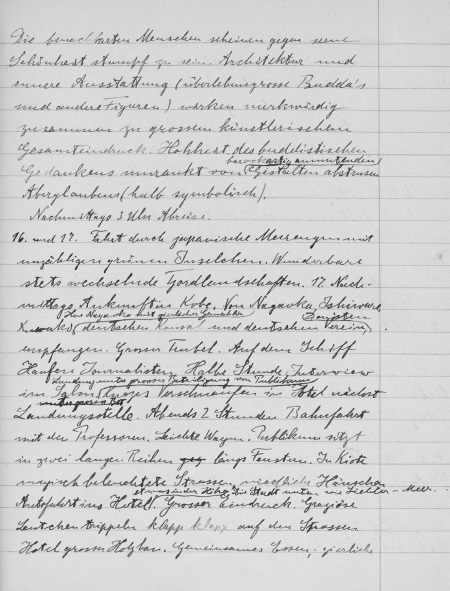 Die benachbarten Menschen scheinen gegen seine
Schönheit stumpf zu sein. Architektur und
innere Ausstattung (überlebensgrosse Budda's
und andere Figuren) wirken merkwürdig
zusammen zu grossem künstlerischem
Gesamteindruck. Hoheit des buddistischen
barockartig anmutenden
Gedankens umrankt von Gestalten abstrusen
Aberglaubens (halb symbolisch).
Nachmittags 3 Uhr Abreise.
16. und 17. Fahrt durch japanische Meerengen mit
unzähligen grünen Inselchen. Wunderbare
stets wechselnde Fjordlandschaften. 17. Nach-
mittags Ankunft in Kobe. Von Nagaoka, Ishiwara,
Kuwaki deutschen Konsul und deutschen Verein
empfangen. Grosser Trubel. Auf dem Schiff
Haufen Journalisten. Halbe Stunde Interview
im Salon. Landung unter grosser Beteiligung von Publikum
Kurzes Verschnaufen in Hotel nächst
Landungsstelle. Abends 2 Stunden Bahnfahrt
mit den Professoren. Leichte Wagen. Publikum sitzt
in zwei langen Reihen längs Fenstern. In Kioto
magisch beleuchtete Strassen, niedliche Häuschen
Autofahrt ins Hotel. etwas in der Höhe. Die Stadt unten wie Lichter-Meer.
Grosser Eindruck. Graziöse
Leutchen trippeln klapp klapp auf den Strassen
Hotel grosser Holzbau. Gemeinsames Essen. zierliche